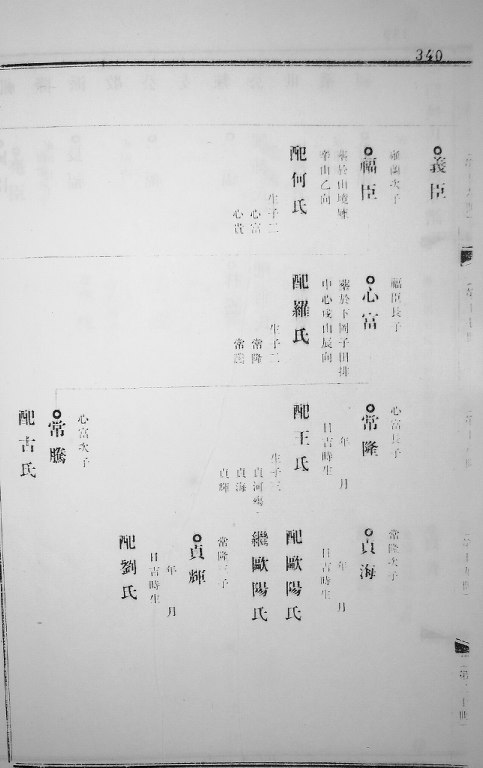 340
義臣
次子
福臣
葬於山
辛山乙向
配何氏
生子二
心富
心貴
福臣長子
心富
葬於下園子田排
中心戌山辰向
配羅氏
生子二
常隆
常
心富長子
常隆
年 月
日吉時生
配王氏
生子三
貞河
貞海
貞輝
心富次子
常騰
配古氏
常隆次子
貞海
年 月
日吉時生
配歐陽氏
繼歐陽氏
常隆三子
貞輝
年 月
日吉時生
配劉氏